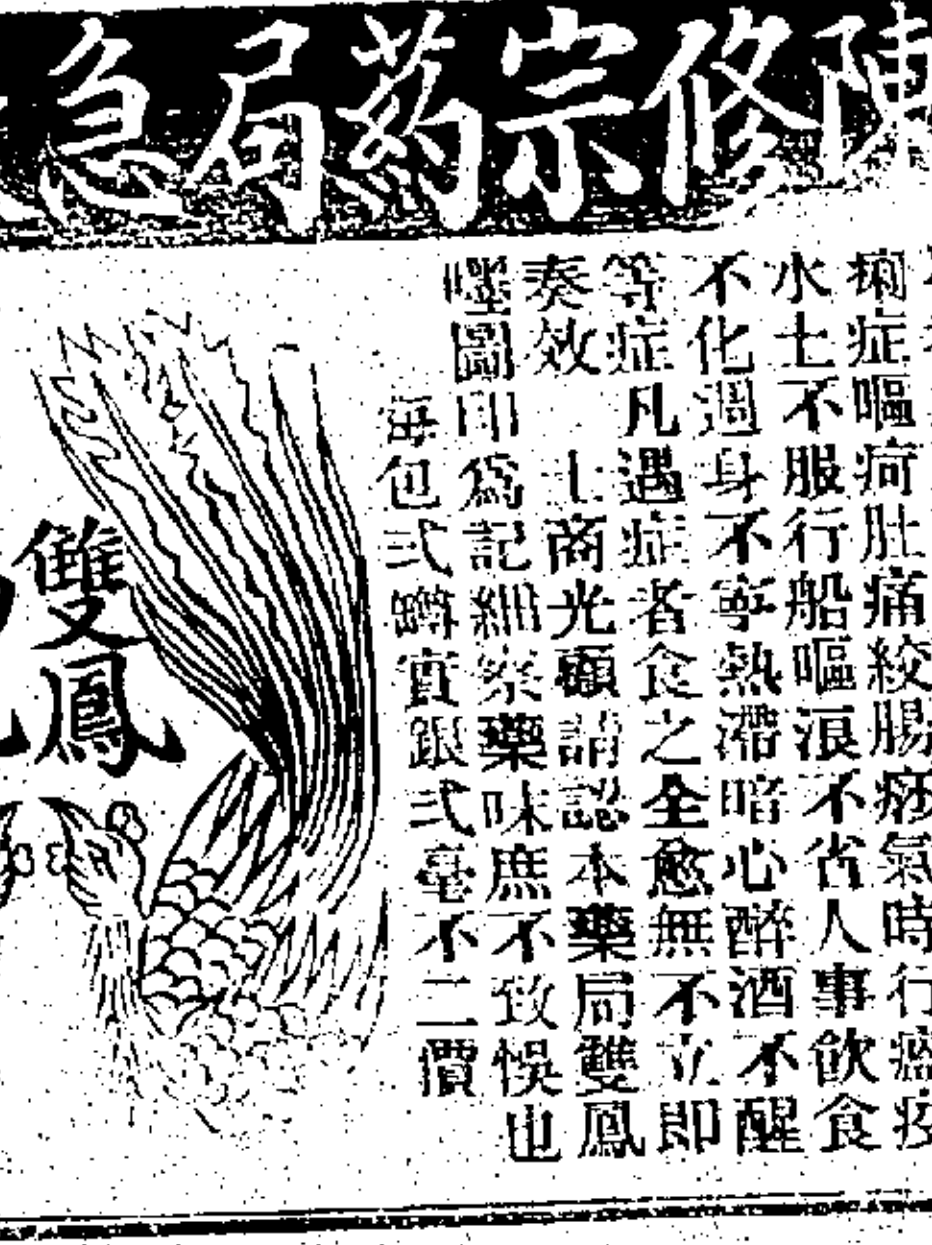 陳修宗葯局急
痢症嘔疴肚痛絞腸痧氣時行瘟疫
水土不服行船嘔浪不省人事飲食
不化週身不寧熱滯暗心醉酒不醒
等症凡遇症者食之全愈無不立即
奏效 士商光顧請認本藥局雙鳳
嘜圖印為記細察藥味庶不致悞也
每包弍罇實銀弍毫不二價
雙鳳